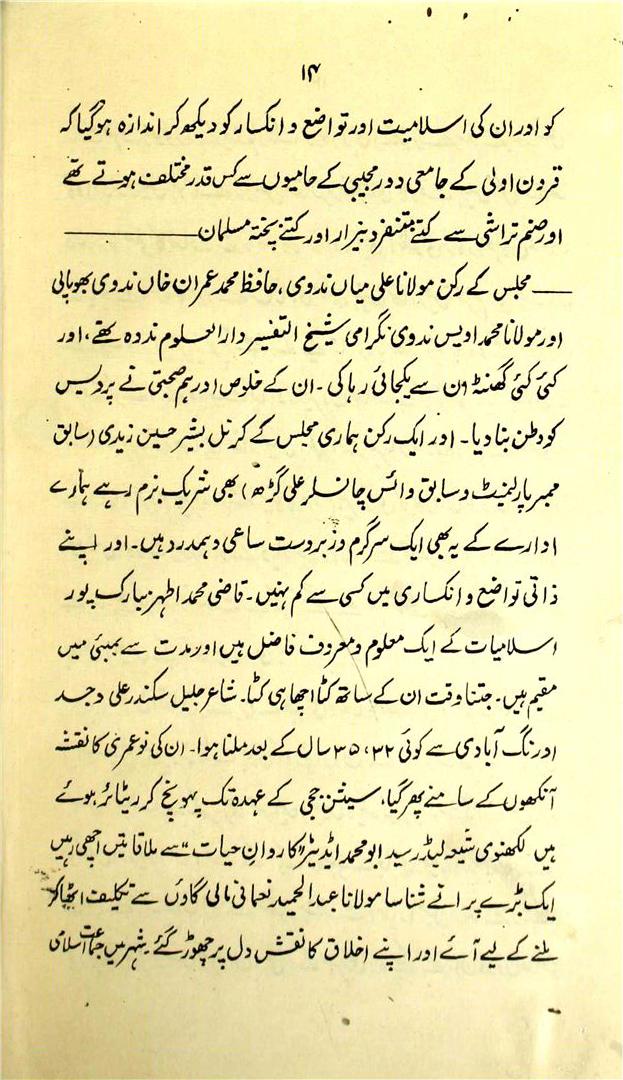 ۱۴
کو اور ان کی اسلامیت اور تواضع و انکسار کو دیکھ کر اندازہ ہوگیا کہ
قرون اولی کے جامعی دور مجیبی کے حامیوں سے کس قدر مختلف ہوتے تھے
اور صنم تراشی سے کتنے متنفر و بیزار اور کتنے پختہ مسلمان ــــــــــــ
ــــ مجلس کے رکن مولانا علی میاں ندوی ، حافظ محمد عمران خاں ندوی بھوپالی
اور مولانا محمد اویس ندوی نگرامی شیخ التفسیر دارالعلوم ندوہ تھے ، اور
کئی کئی گھنٹہ ان سے یکجائی رہا کی ۔ ان کے خلوص اور ہم صحبتی نے پردیس
کو وطن بنا دیا ۔ اور ایک رکن ہماری مجلس کے کرنل بشیر حسین زیدی ( سابق
ممبر پارلیمنٹ و سابق وائس چانسلر علی گڑھ ) بھی شریک بزم رہے ہمارے
ادارے کے یہ بھی ایک سرگرم و زبردست ساعی و ہمدرد ہیں ۔ اور اپنے
ذاتی تواضع و انکساری میں کسی سے کم نہیں ۔ قاضی محمد اطہر مبارک پور
اسلامیات کے ایک معلوم و معروف فاضل ہیں اور مدت سے بمبئی میں
مقیم ہیں ۔ جتنا وقت ان کے ساتھ کٹا اچھا ہی کٹا ۔ شاعر جلیل سکندر علی وجد
اورنگ آبادی سے کوئی ۳۲، ۳۵ سال کے بعد ملنا ہوا ۔ ان کی نوعمری کا نقشہ
آنکھوں کے سامنے پھر گیا ، سیشن ججی کے عہدہ تک پہونچ کر ریٹائر ہوئے
ہیں لکھنوی شیعہ لیڈر سید ابو محمد ایڈیٹر "کاروانِ حیات" سے ملاقاتیں اچھی رہیں
ایک بڑے پرانے شناسا مولانا عبدالحمید نعمانی مالی گاؤں سے تکلیف اٹھا کر
ملنے کے لیے آئے اور اپنے اخلاق کا نقش دل پر چھوڑ گئے ۔ شہر میں جماعت اسلامی